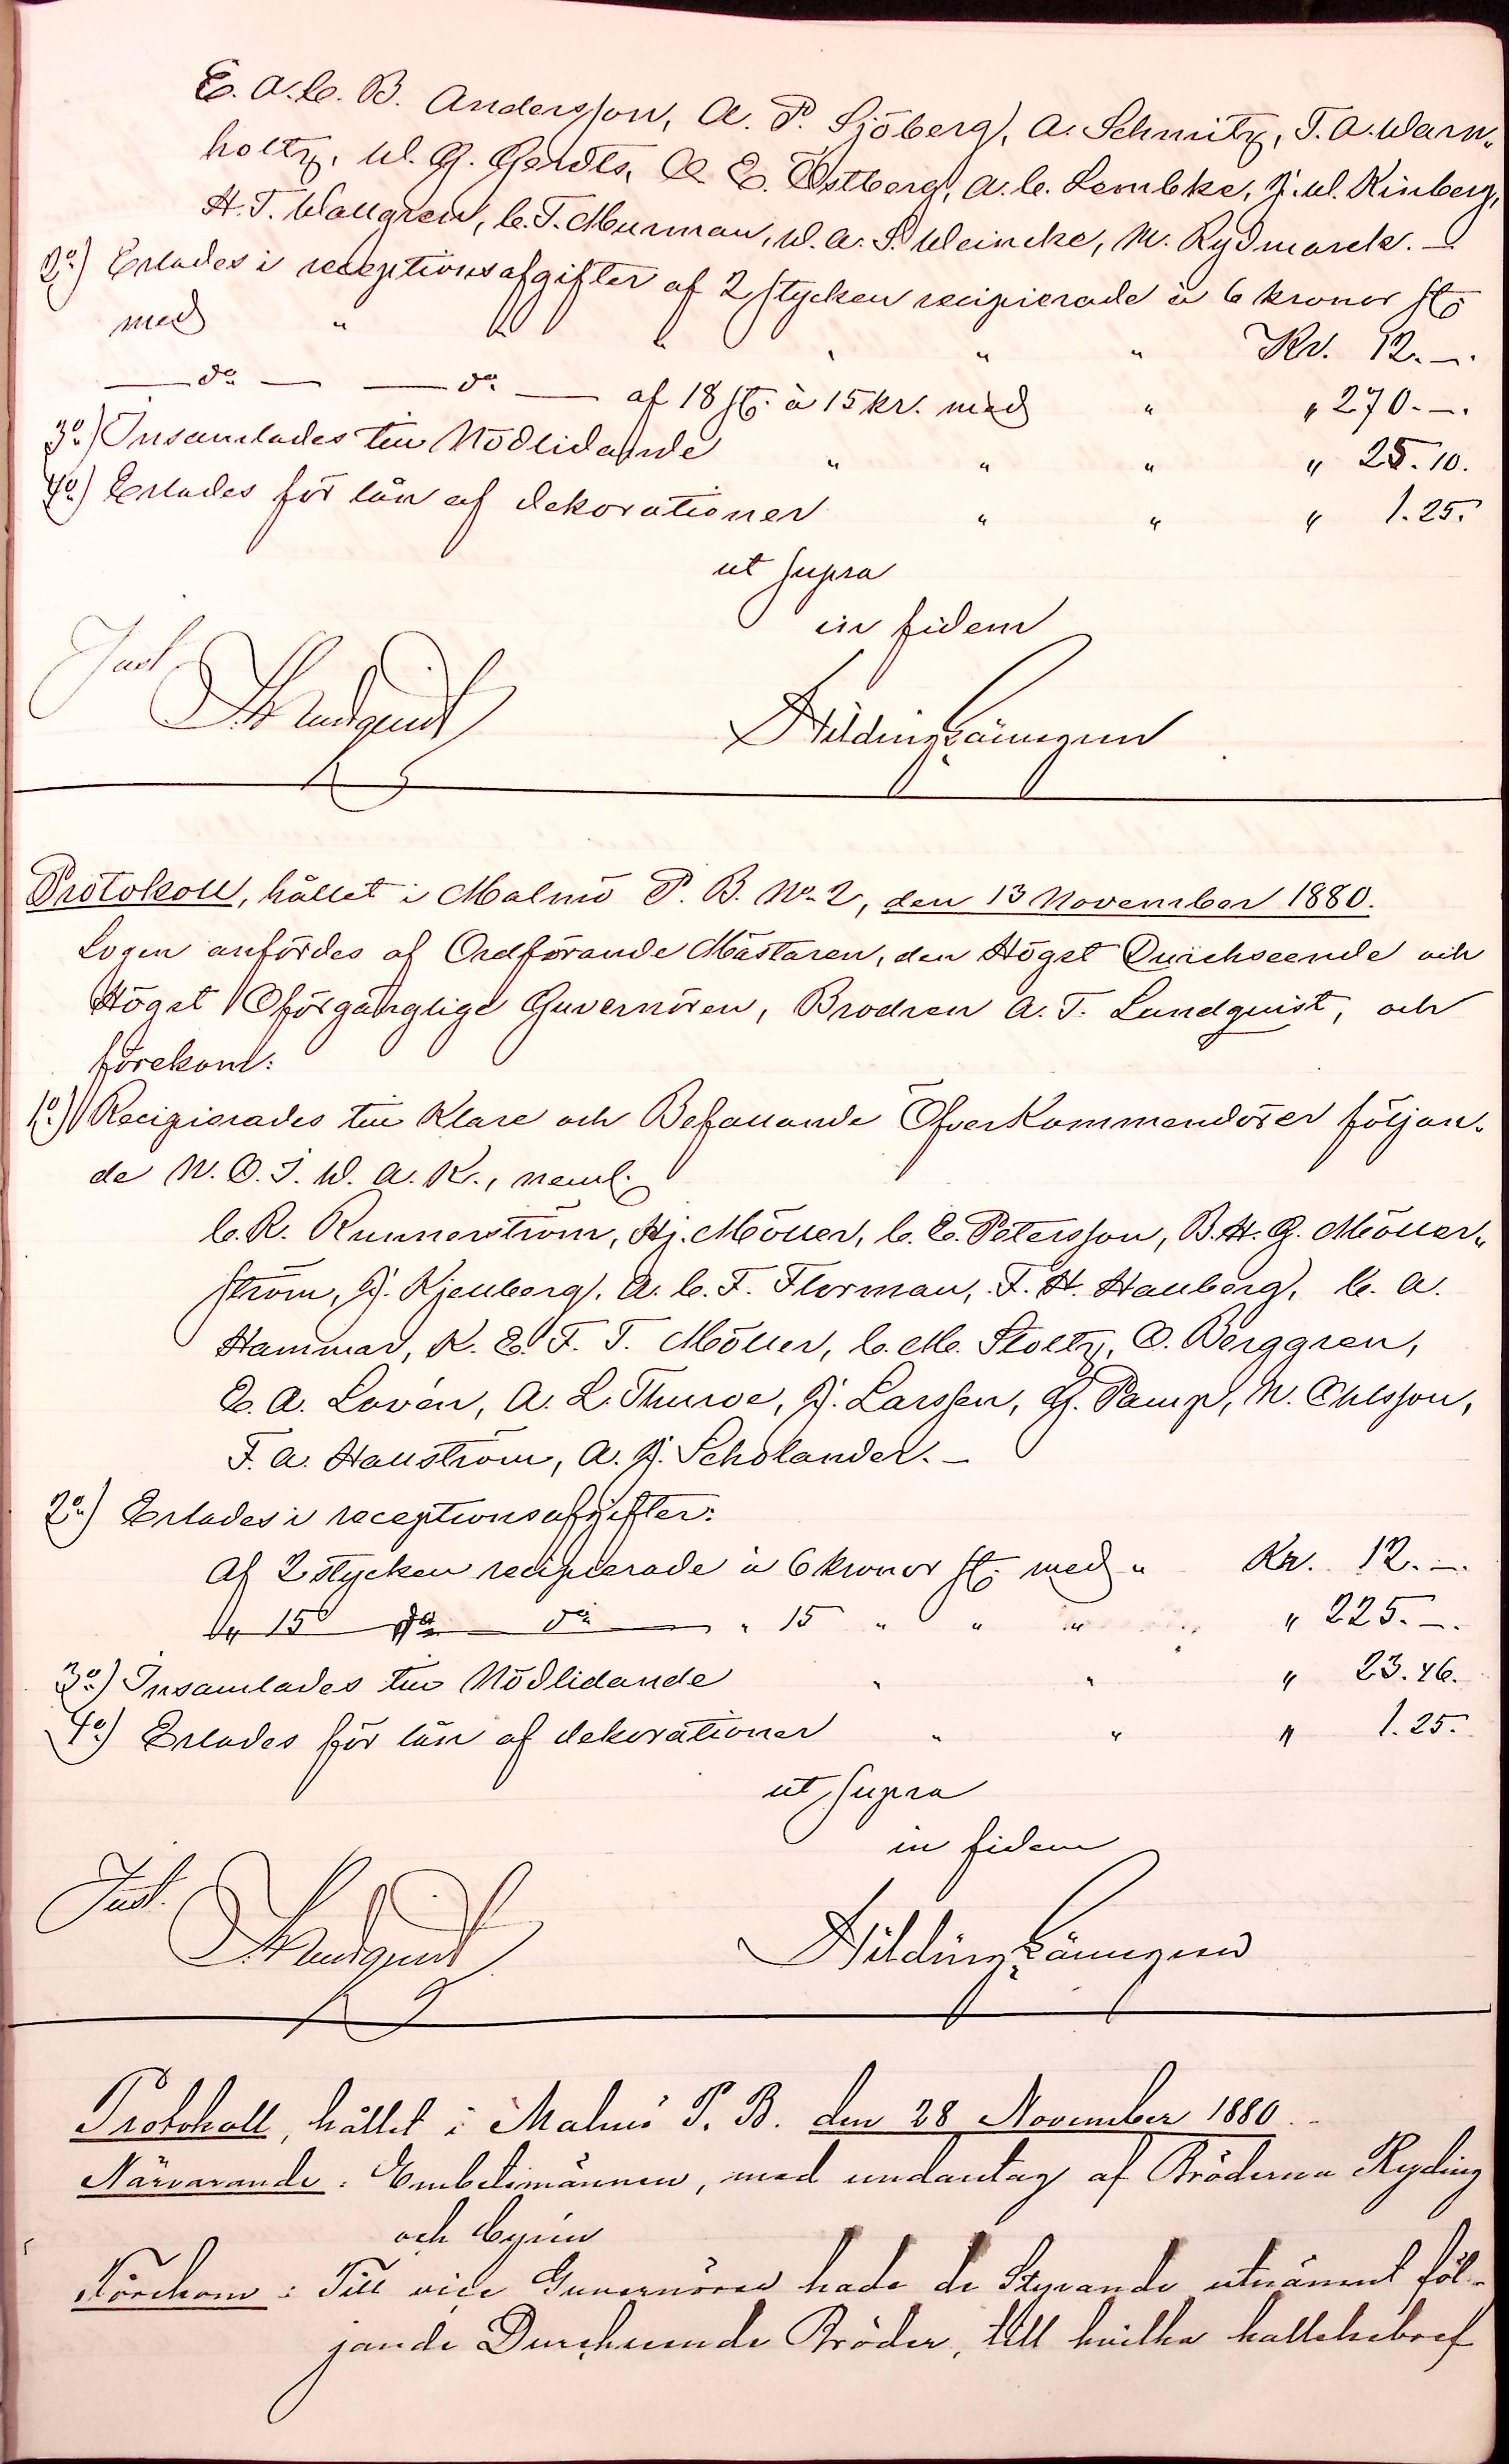 E. A. C. B. Andersson, A. P. Sjöberg, A. Schmitz, T. A. Warn„
holtz, W. G. Gerdts, A. E. Östberg, A. C. Lembke, J. W. Kinberg,
H. T. Wallgren, C. T. Murman, W. A. S. Weincke, M. Rydmarck. —
2o.) Erlades i receptionsafgifter af 2 stycken recipierade à 6 kronor st.
med " " " " " " Kr. 12. —.
— do — — do — af 18 st. à 15 kr. med " " 270. —.
3o.) Insamlades till Nödlidande " " " " 25. 10.
4o.) Erlades för lån af dekorationer " " " 1. 25.
ut supra
in fidem
Just.
A. T. Lundquist
Hilding
Protokoll, hållet i Malmö P. B. No. 2, den 13 November 1880.
Logen anfördes af Ordförande Mästaren, den Högst Durchseende och
Högst Oförgänglige Guvernören, Brodren A. T. Lundquist, och
förekom:
1o.) Recipierades till Klare och Befallande ÖfverKommendörer följan„
de W. O. J. W. A. K., neml.
C. R. Runnerström, Hj. Möller, C. E. Petersson, B. H. G. Möller„
ström, J. Kjellberg, A. C. F. Florman, F. H. Hallberg, C. A.
Hammar, K. E. F. T. Möller, C. M. Stoltz, O. Berggren,
E. A. Lovén, A. L. Thurve, J. Larssen, G. Pamp, N. Ohlsson,
F. A. Hallström, A. J. Scholander. —
2o.) Erlades i receptionsafgifter:
Af 2 stycken recipierade à 6 kronor st. med " Kr. 12. —.
" 15 do do " 15 " " " " 225. —.
3o.) Insamlades till Nödlidande " " " 23. 46.
4o.) Erlades för lån af dekorationer " " " 1. 25.
ut supra
in fidem
Just.
A. T. Lundquist
Hilding
Protokoll, hållet i Malmö P. B. den 28 November 1880.
Närvarande: Embetsmännen, med undantag af Bröderna Ryding
och
Förekom: Till vice Guvernörer hade de Styrande utnämnt föl-
jande Durchseende Bröder, till hvilka kallelsebref